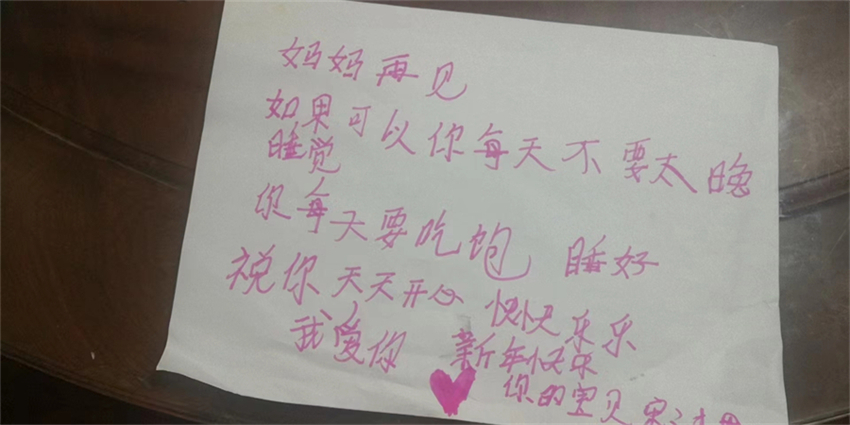 妈妈再见
如果可以你每天不要太晚
睡觉
你每天要吃饱 睡好
祝你天天开心 快快乐乐
我爱你 新年快乐
你的宝贝